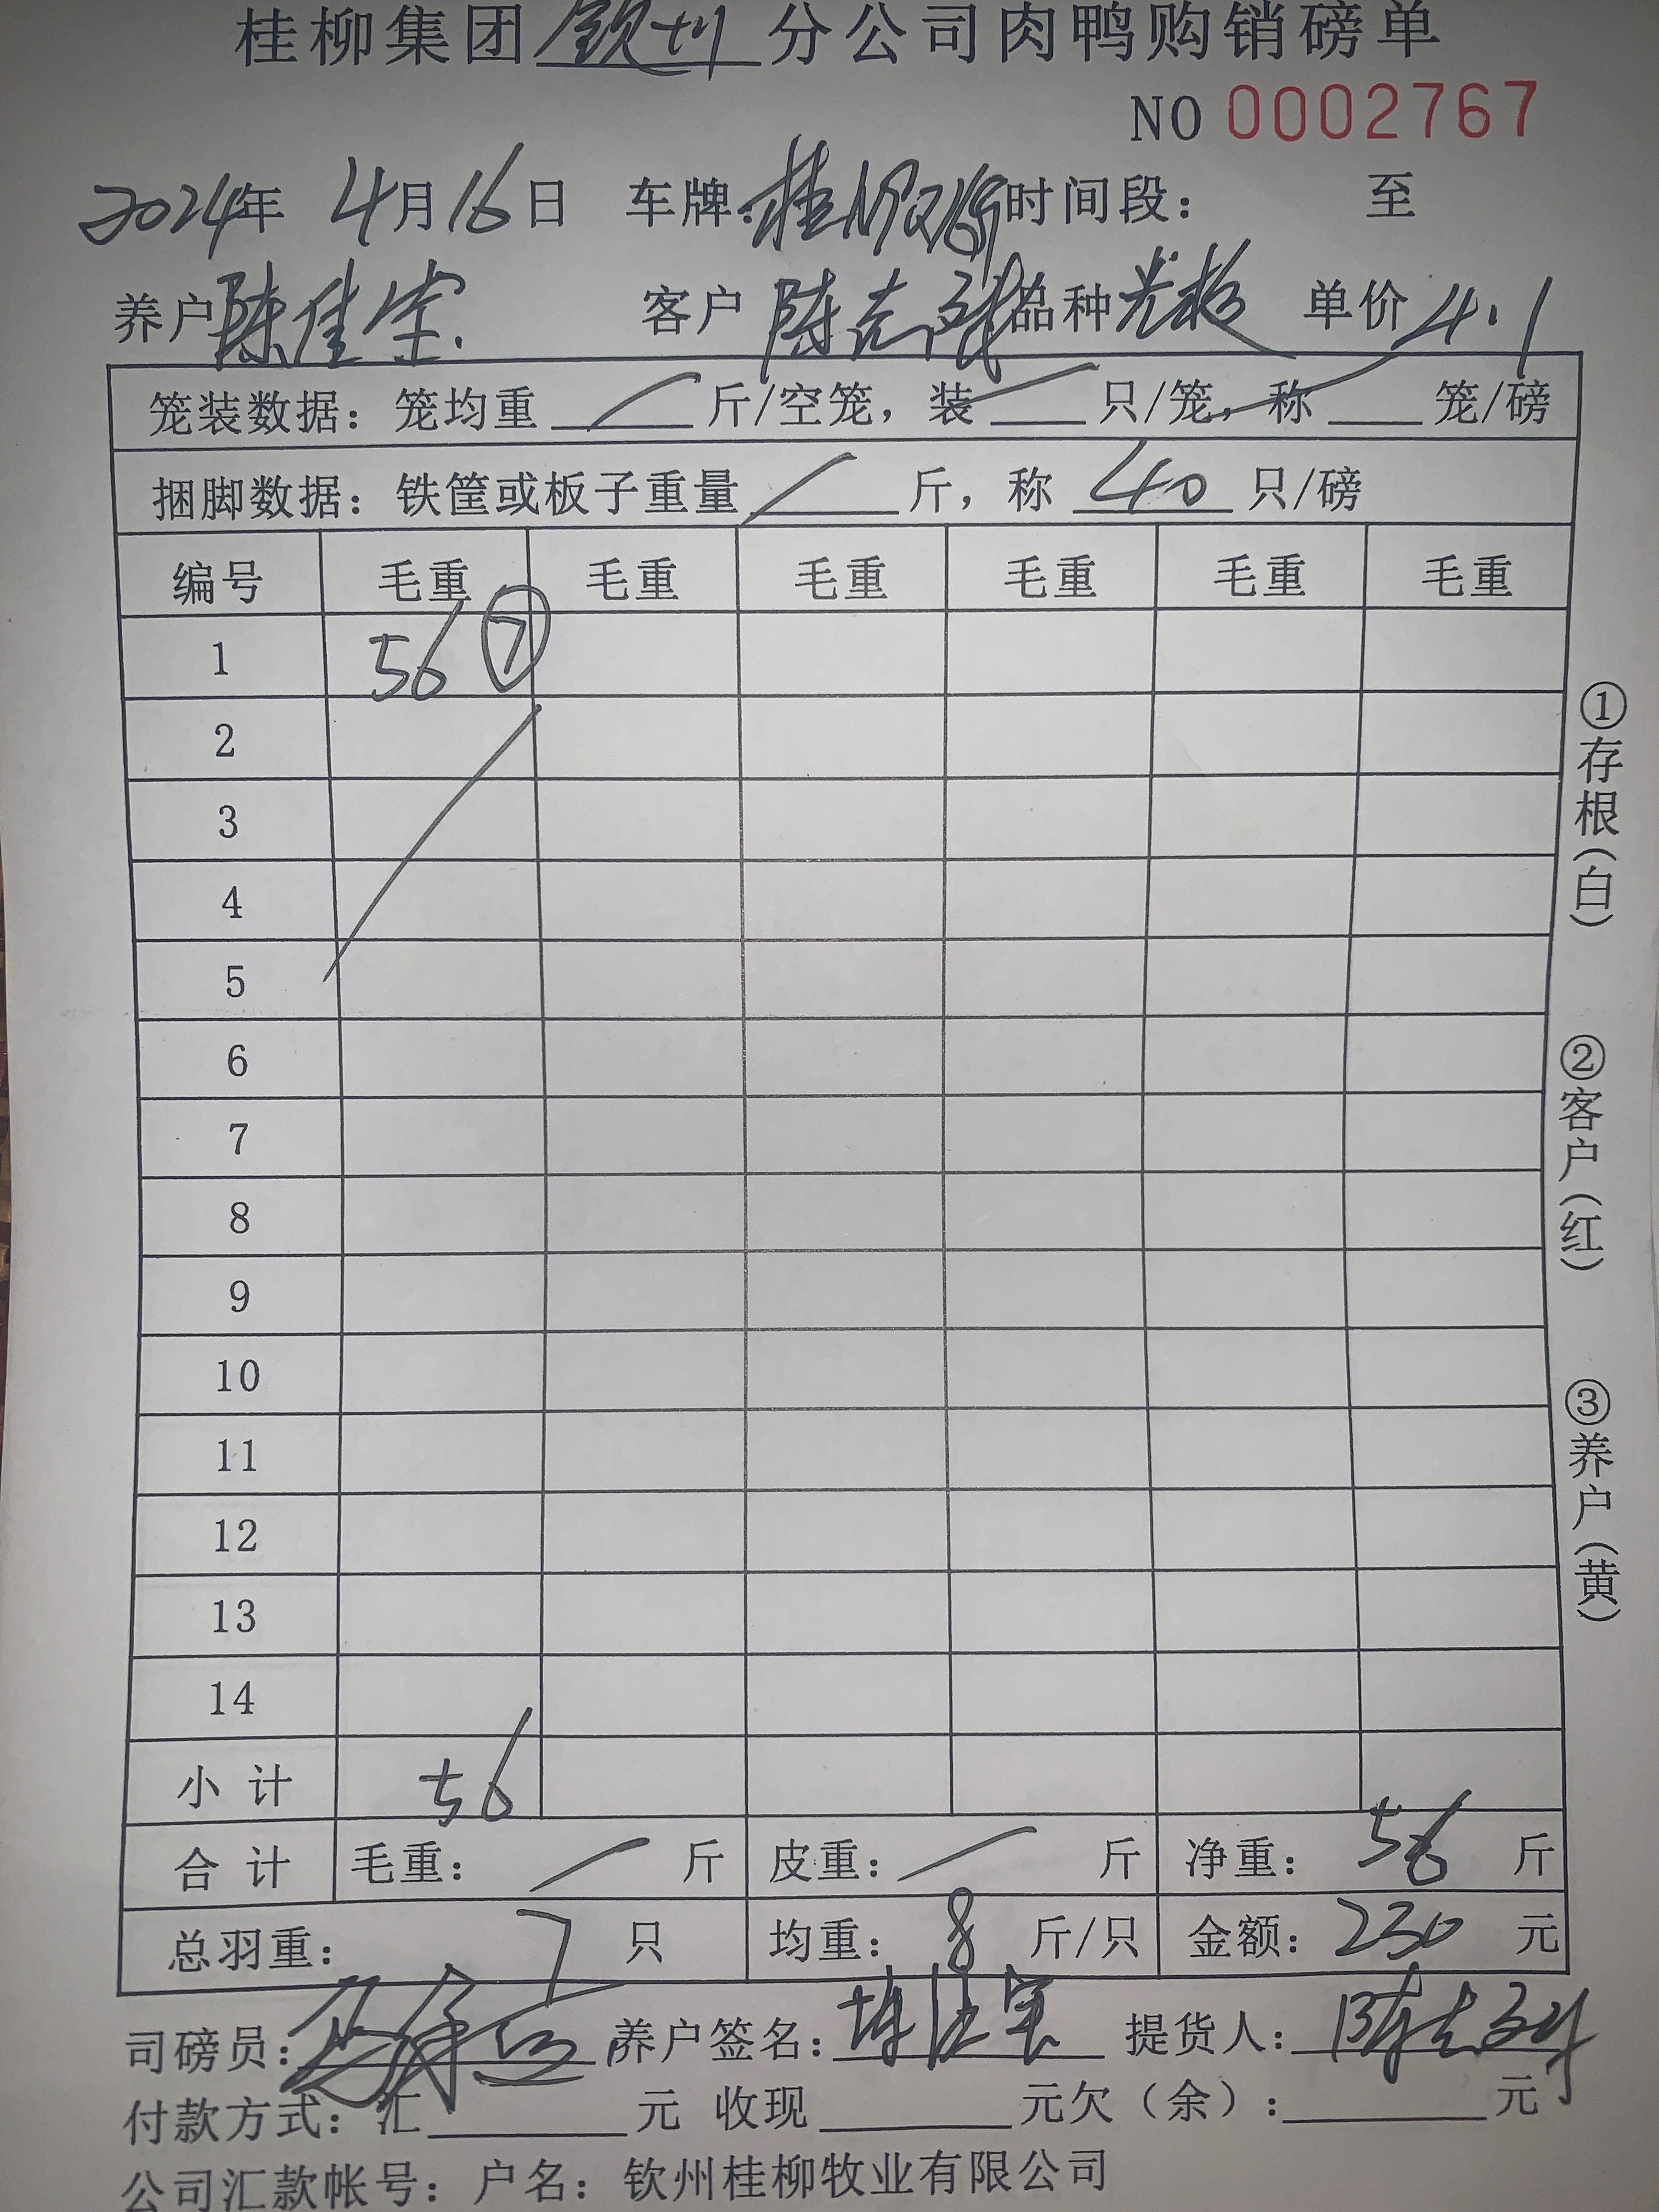 桂柳集团钦州分公司肉鸭购销磅单
NO 0002767
2024年 4月16日 车牌:桂 时间段: 至
养户陈佳宗 客户 陈志 品种 单价4.1
笼装数据: 笼均重 斤/空笼, 装 只/笼, 称 笼/磅
捆脚数据: 铁筐或板子重量 斤, 称 40 只/磅
编号 毛重 毛重 毛重 毛重 毛重 毛重
1 56 ⑦
2
3
4
5
6
7
8
9
10
11
12
13
14
小计 56
合计 毛重: 斤 皮重: 斤 净重: 56 斤
总羽重: 7 只 均重: 8 斤/只 金额: 230 元
司磅员: 养户签名: 陈佳宗 提货人: 陈志
付款方式: 汇 元 收现 元欠(余): 元
公司汇款帐号: 户名: 钦州桂柳牧业有限公司
①存根(白)
②客户(红)
③养户(黄)